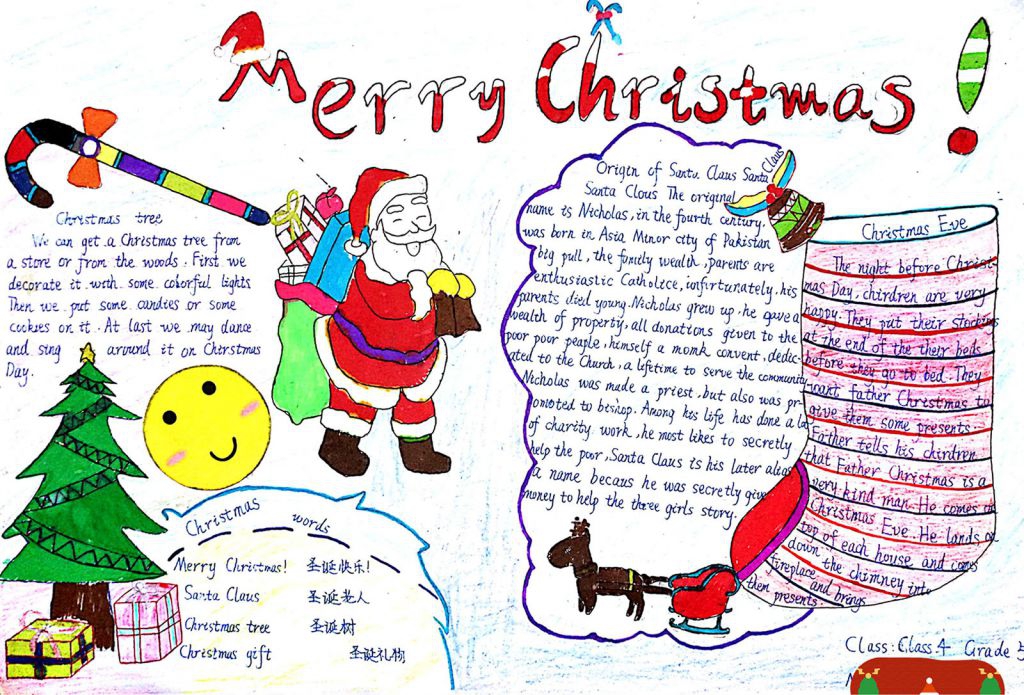 Merry Christmas!
Christmas tree
We can get a Christmas tree from
a store or from the woods. First we
decorate it with some colorful lights
Then we put some candies or some
cookies on it. At last we may dance
and sing around it on Christmas
Day.
Christmas words
Merry Christmas! 圣诞快乐!
Santa Claus 圣诞老人
Christmas tree 圣诞树
Christmas gift 圣诞礼物
Origin of Santa Claus Santa Claus
Santa Clous The original
name is Nicholas, in the fourth century,
was born in Asia Minor city of Pakistan
big pull, the family wealth, parents are
enthusiastic Catholice, unfirtunately, his
parents died young. Nicholas grew up, he gave a
wealth of property, all donations given to the
poor poor people, himself a momk convent, dedic-
ated to the Church, a lifetime to serve the community
Nicholas was made a priest, but also was pr-
omoted to bishop. Among his life has done a lot
of charity work, he most likes to secretly
help the poor, Santa Claus is his later alias
a name becaus he was secretly give
money to help the three girls story.
Christmas Eve
The night before Christ-
mas Day, chirdren are very
happy. They put their stockings
at the end of the their beds
before they go to bed. They
want father Christmas to
give them some presents.
Father tells his chirdren
that Father Christmas is a
very kind man. He comes on
Christmas Eve. He lands on
top of each house and comes
down the chimney into
fireplace and brings
them presents.
Class: Class 4 Grade 5